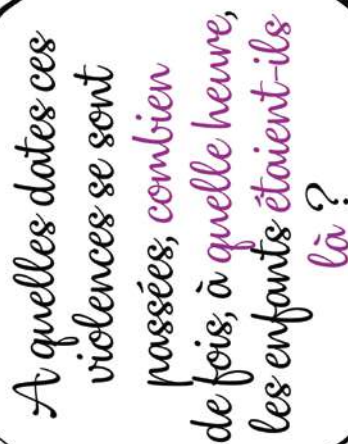 A quelles dates ces
violences se sont
passées, combien
de fois, à quelle heure,
les enfants étaient-ils
là ?